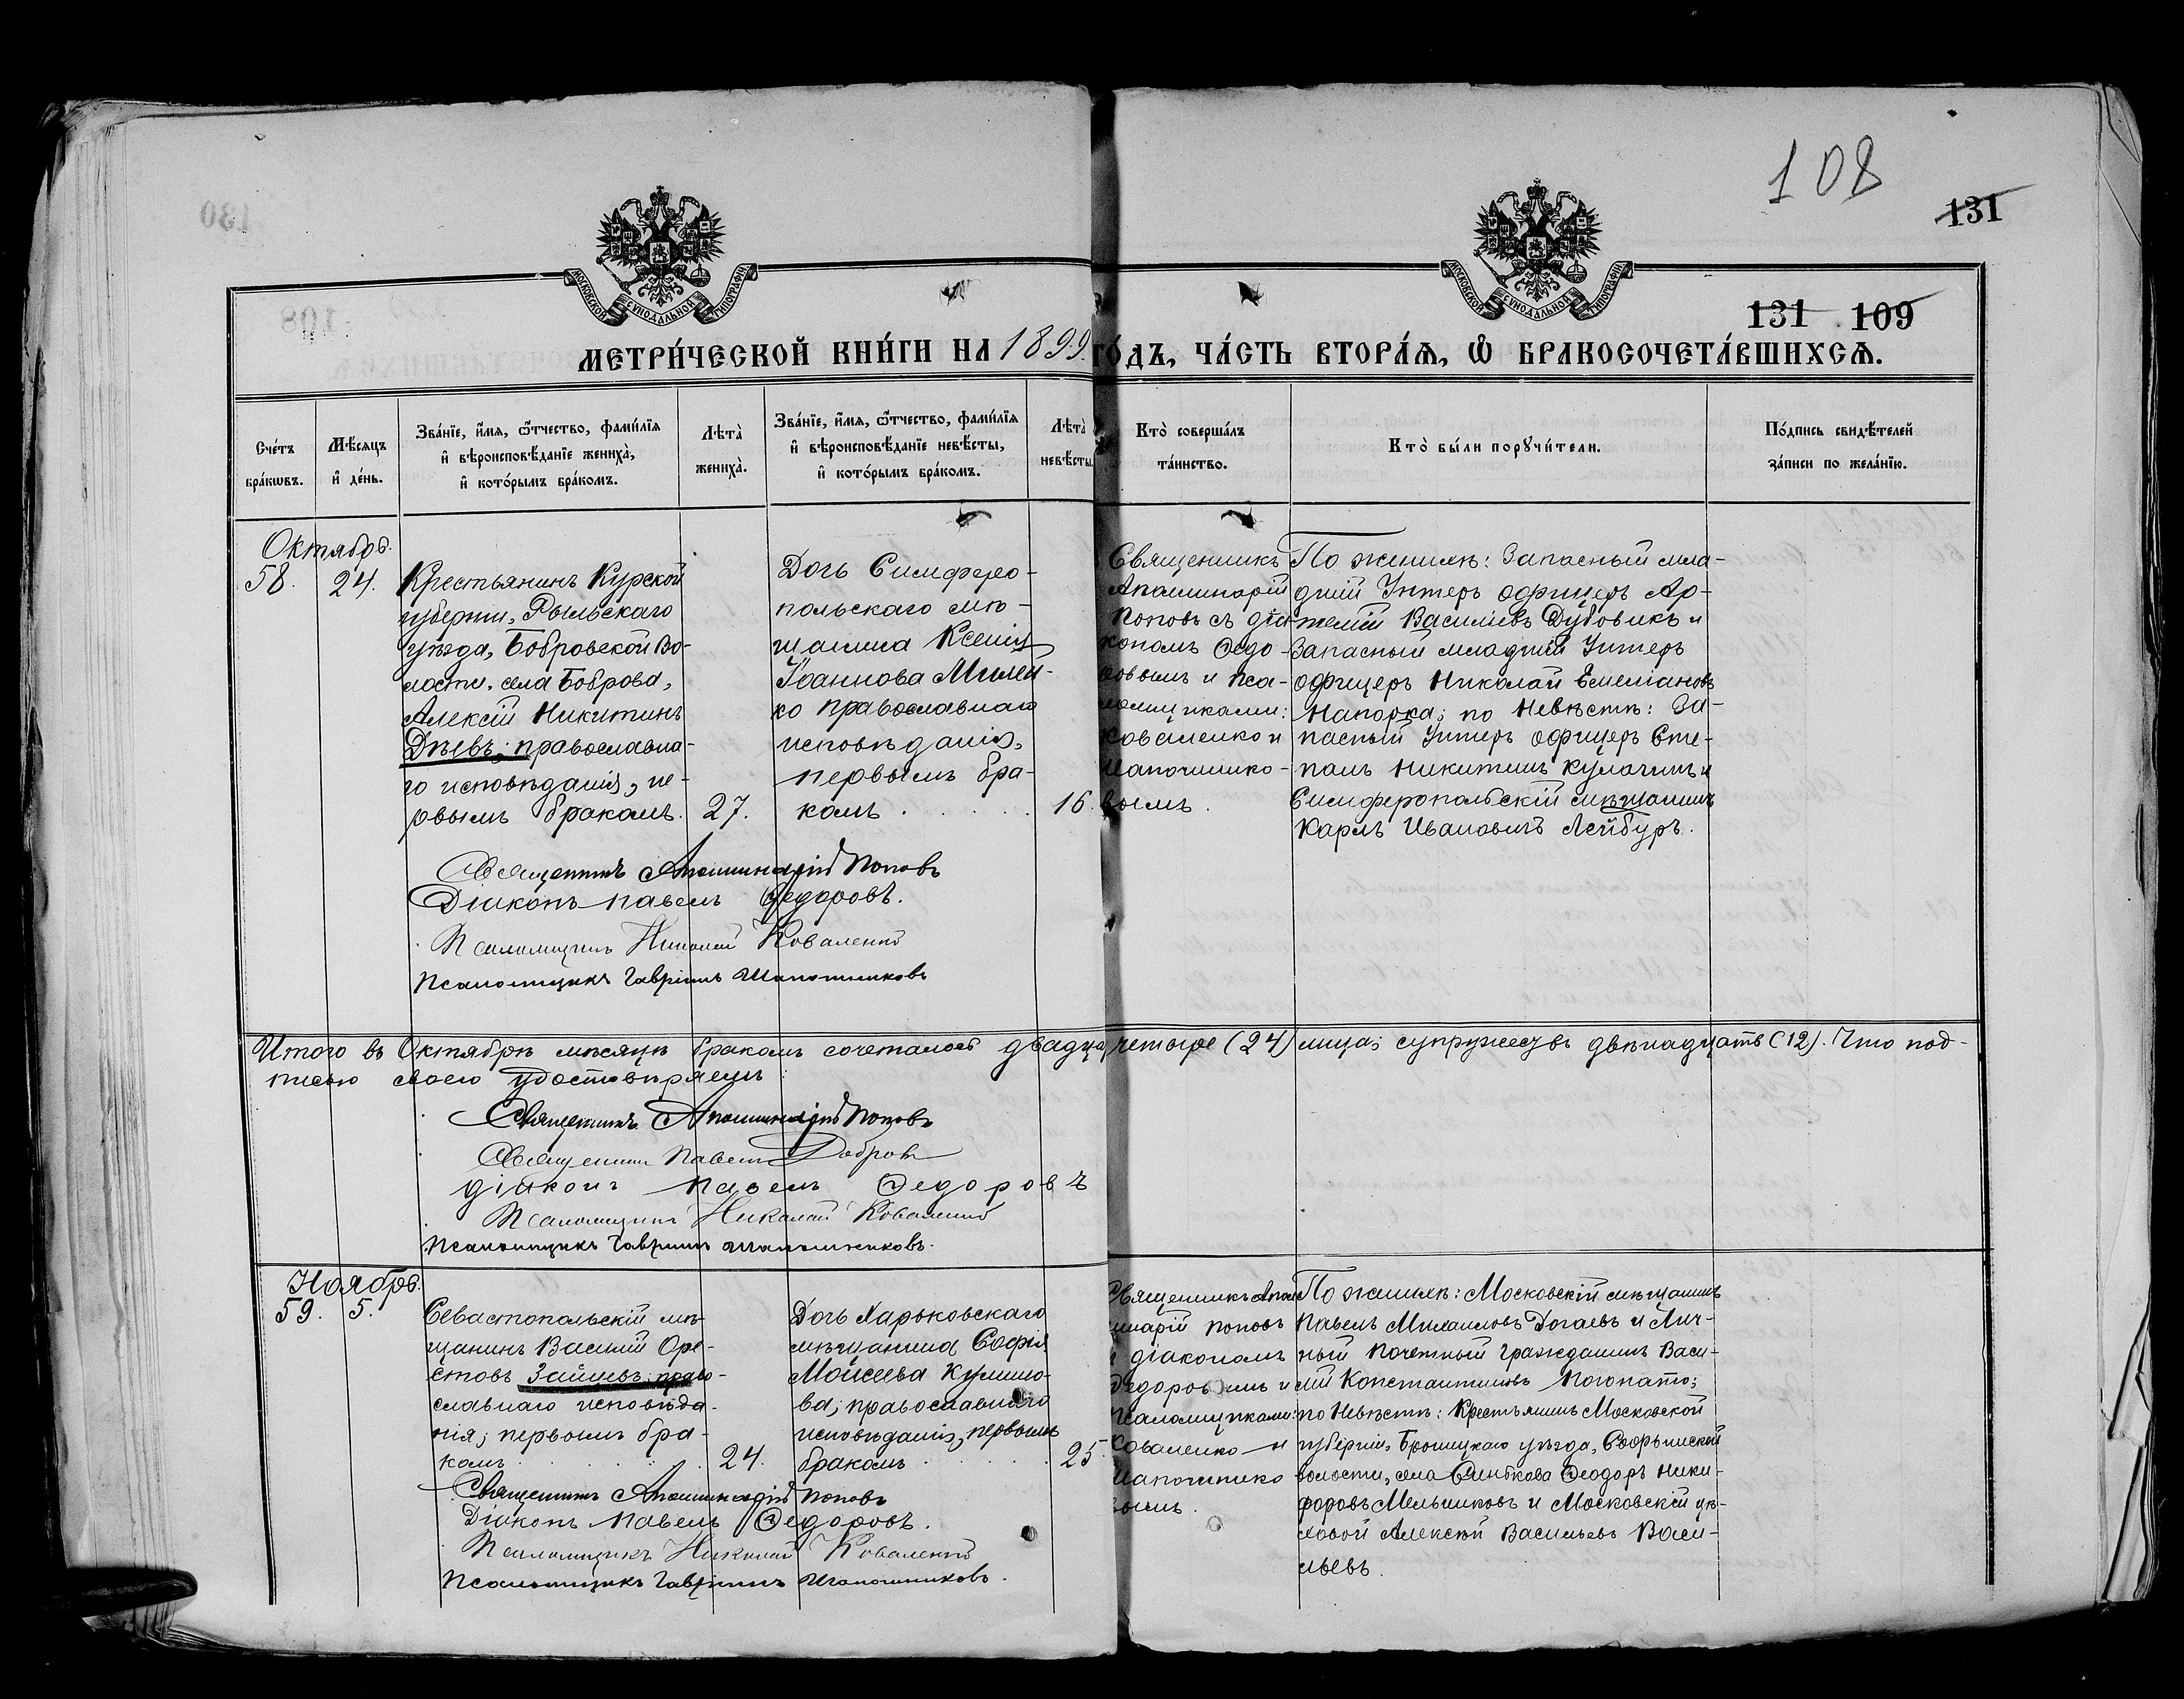 108
131
131 109
МОСКОВСКОЙ СѴНОДАЛЬНОЙ ТИПОГРАФІИ
МОСКОВСКОЙ СѴНОДАЛЬНОЙ ТИПОГРАФІИ
МЕТРИ́ЧЕСКОЙ КНИ́ГИ НА 1899 ГО́ДЪ, ЧА́СТЬ ВТОРА́Ѧ, Ѽ БРАКОСОЧЕТА́ВШИХСѦ.
Сче́тъ
бра́кѡвъ.
Мѣ́сѧцъ
и҆ де́нь.
Зва́нїе, и҆́мѧ, ѻ҆́тчество, фами́лїѧ
и҆ вѣроисповѣ́данїе жениха̀,
и҆ кото́рымъ бра́комъ.
Лѣта̀
жениха̀.
Зва́нїе, и҆́мѧ, ѻ҆́тчество, фами́лїѧ
и҆ вѣроисповѣ́данїе невѣ́сты,
и҆ кото́рымъ бра́комъ.
Лѣта̀
невѣ́сты
Кто̀ соверша́лъ
та́инство.
Кто̀ бы́ли порꙋчи́тели.
По́дпись свидѣ́телей
за́писи по жела́нїю.
Октябрь.
58. 24.
Крестьянинъ Курской
губернии, Рыльскаго
уѣзда, Бобровской Во-
лости, села Боброва,
Алексій Никитинъ
Днѣвъ; православна-
го исповѣданія, пе-
рвымъ бракомъ. 27.
Дочь Симферо-
польскаго мѣ-
щанина Ксенія
Іоаннова Милен-
ко православнаго
исповѣданія,
первымъ бра-
комъ 16.
Священникъ
Аполлинарій
Поповъ съ діа
кономъ Ѳедо-
ровымъ и пса-
ломщиками:
Коваленко и
Шапочнико-
вымъ.
По женихѣ: Запасный мла-
дшій Унтеръ офицеръ Ар-
темій Василіевъ Дубовикъ и
Запасный младшій Унтеръ
офицеръ Николай Емеліановъ
Напорка; по Невѣстѣ: За-
пасный Унтеръ офицеръ Сте-
панъ Никитинъ Кулачинъ и
Симферопольскій мѣщанинъ
Карлъ Ивановичъ Лейбуръ.
Священникъ Аполлинарій Поповъ
Діаконъ Павелъ Ѳедоровъ.
Псаломщикъ Николай Коваленко
Псаломщикъ Гавріилъ Шапошниковъ
Итого въ Октябрѣ мѣсяцѣ бракомъ сочеталось двадцать четыре (24) лица; супружествъ двѣнадцать (12). Что под-
писью своею удостовѣряемъ:
Священникъ Аполлинарій Поповъ
Священникъ Павелъ Добровъ
діаконъ Павелъ Ѳедоровъ
Псаломщикъ Николай Коваленко
Псаломщикъ Гавріилъ Шапошниковъ.
Ноябрь.
59. 5.
Севастопольскій мѣ-
щанинъ Василій Оре-
стовъ Зайцевъ; право-
славнаго исповѣда-
нія; первымъ бра-
комъ 24.
Дочь Харьковскаго
мѣщанина Софія
Моисеева Кулико-
ва; православнаго
исповѣданія, первымъ
бракомъ 25.
Священникъ Апол
линарій Поповъ
діакономъ
Ѳедоровымъ и
псаломщиками:
Коваленко и
Шапочнико
вымъ.
По женихѣ: Московскій мѣщанинъ
Павелъ Михаиловъ Догаевъ и Лич-
ный Почетный Гражданинъ Васи-
лій Константиновъ Погонато;
по Невѣстѣ: Крестьянинъ Московской
губерніи, Бронницкаго уѣзда,
волости, села Синькова Ѳеодоръ Ники-
форовъ Мельниковъ и Московскій це-
ховой Алексѣй Васильевъ Васи-
льевъ.
Священникъ Аполлинарій Поповъ
Діаконъ Павелъ Ѳедоровъ.
Псаломщикъ Николай Коваленко
Псаломщикъ Гавріилъ Шапошниковъ.